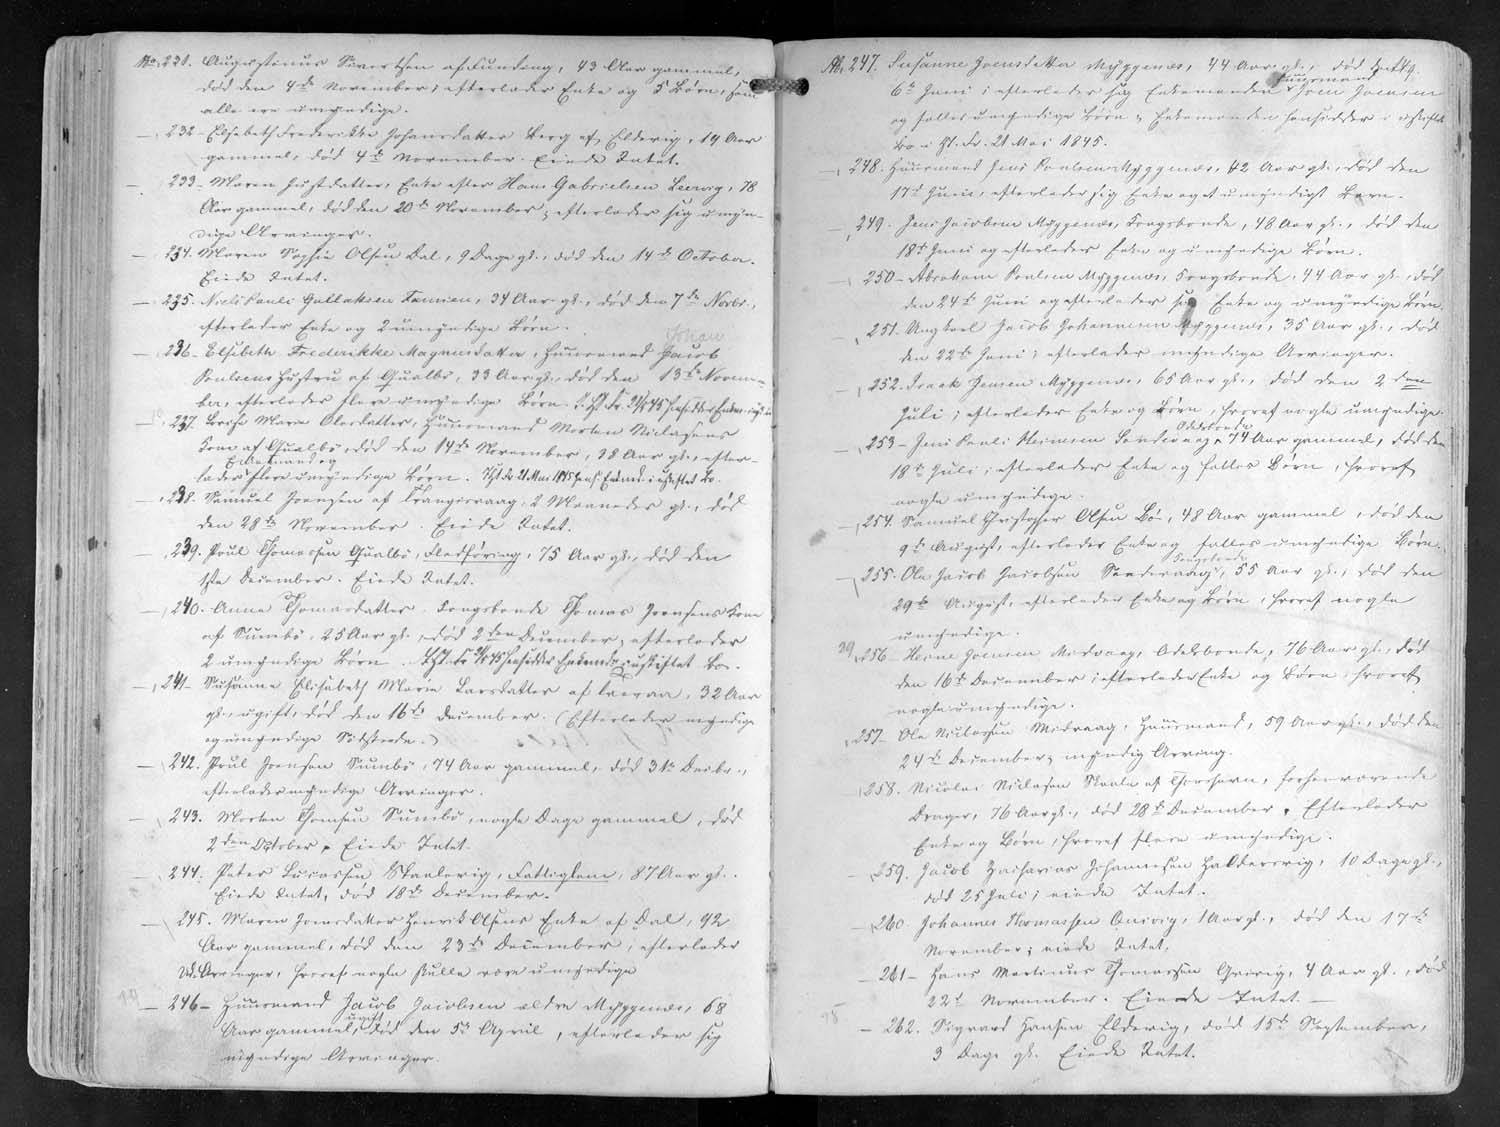 No. 231. Augustinus Sivertsen af Funding, 43 Aar gammel,
død den 4de November; efterlader Enke og 5 Børn, som
alle ere umyndige.
— 232 – Elsebeth Frederikke Johansdatter Berg af Eldevig, 19 Aar
gammel, død 4de November. Eiede Intet.
— 233 – Maren Justdatter, Enke efter Hans Gabrielsen Leervig, 78
Aar gammel, død den 20de November; efterlader sig umyn-
dige Arvinger.
— 234. Maren Sophie Olsen Dal, 9 Dage gl., død den 14de October.
Eiede Intet.
— 235. Niels Pauli Gullaksen Famien, 34 Aar gl., død den 7de Novbr.,
efterlader Enke og 2 umyndige Børn.
Johan
— 236 – Elsebeth Frederikke Magnusdatter, Huusmand Jacob
Poulsens Hustru af Qualbø, 33 Aar gl., død den 13de Novem-
ber, efterlader flere umyndige Børn.
— 237. Maren Olesdatter, Huusmand Morten Niclasens
Kone af Qualbø, død den 14de November, 38 Aar gl., efter-
Enkemand og
lader flere umyndige Børn. 21 Mai 1845 hens. Enkem. i uskiftet Bo.
— 238. Samuel Joensen af Frangisvaag, 2 Maaneder gl., død
den 28de November. Eiede Intet.
— 239. Poul Thomassen Qualbø, Fledføring, 75 Aar gl., død den
1ste December. Eiede Intet.
— 240. Anna Thomasdatter, Kongsbonde Thomas Joensens Kone
af Sumbø, 25 Aar gl., død 2den December, efterlader
2 umyndige Børn. 21/5 45 hensidder Enkemd. i uskiftet Bo.
— 241 – Susanne Elisabeth Marie Larsdatter af Tveraa, 32 Aar
gl., ugift, død den 16de December. (Efterlader myndige
og umyndige Sødskende.)
— 242. Poul Joensen Sumbø, 74 Aar gammel, død 31te Decbr.,
efterlader myndige Arvinger.
— 243. Morten Thomsen Sumbø, nogle Dage gammel, død
2den October. Eiede Intet.
— 244. Peter Lucassen Skaalevig, Fattiglem, 87 Aar gl.
Eiede Intet, død 18de December.
— 245. Maren Joensdatter Henrik Olsens Enke af Dal, 92
Aar gammel, død den 23de December, efterlader
Ud. Arvinger, hvoraf nogle skulle være umyndige
— 246 – Huusmand Jacob Jacobsen ældre Myggenæs, 68
ugift
Aar gammel, død den 5te April, efterlader sig
myndige Arvinger.
No. 247. Susanne Joensdatter Myggenæs, 44 Aar gl., død den
Huusmand
6te Juni; efterlader sig Enkemanden Joen Joensen
og fælles umyndige Børn; Enkemanden hensidder i uskiftet
Bo 21 Mai 1845.
— 248. Huusmand Jens Poulsen Myggenæs, 42 Aar gl., død den
17de Juni, efterlader sig Enke og et umyndigt Barn.
— 249. Jens Jacobsen Myggenæs, Kongsbonde, 48 Aar gl., død den
18de Juni og efterlader Enke og umyndige Børn.
— 250 – Abraham Poulsen Myggenæs, Kongsbonde, 44 Aar gl., død
den 24de Juni og efterlader sig Enke og umyndige Børn.
— 251. Ungkarl Jacob Johannesen Myggenæs, 35 Aar gl., død
den 22de Juni; efterlader myndige Arvinger.
— 252. Isaak Jensen Myggenæs, 65 Aar gl., død den 2den
Juli; efterlader Enke og Børn, hvoraf nogle umyndige.
Odelsbonde
— 253 – Jens Pauli Heinesen Sandevaag, 74 Aar gammel, død den
18de Juli; efterlader Enke og fælles Børn, hvoraf
nogle umyndige.
— 254. Samuel Christopher Olsen Bø, 48 Aar gammel, død den
9de August, efterlader Enke og fælles umyndige Børn.
Kongsbonde
— 255. Ole Jacob Jacobsen Sandevaag, 55 Aar gl., død den
29de August, efterlader Enke og Børn, hvoraf nogle
umyndige.
— 256 – Heine Joensen Midvaag, Odelsbonde, 76 Aar gl., død
den 16de December; efterlader Enke og Børn, hvoraf
nogle umyndige.
— 257 – Ole Niclassen Midvaag, Huusmand, 59 Aar gl., død den
24de December, myndig Arving.
— 258. Nicolai Niclasen Skaale af Thorshavn, forhenværende
Drager, 76 Aar gl., død 28de December. Efterlader
Enke og Børn, hvoraf flere umyndige.
— 259. Jacob Zacharias Johannesen Haldersvig, 10 Dage gl.,
død 25 Juli; eiede Intet.
— 260. Johannes Thomassen Qvivig, 1 Aar gl., død den 17de
November; eiede Intet.
— 261 – Hans Martinus Thomassen Qvivig, 4 Aar gl., død
22de November. Eiede Intet. —
— 262. Sigvard Hansen Eldevig, død 15de September,
3 Dage gl. Eiede Intet.